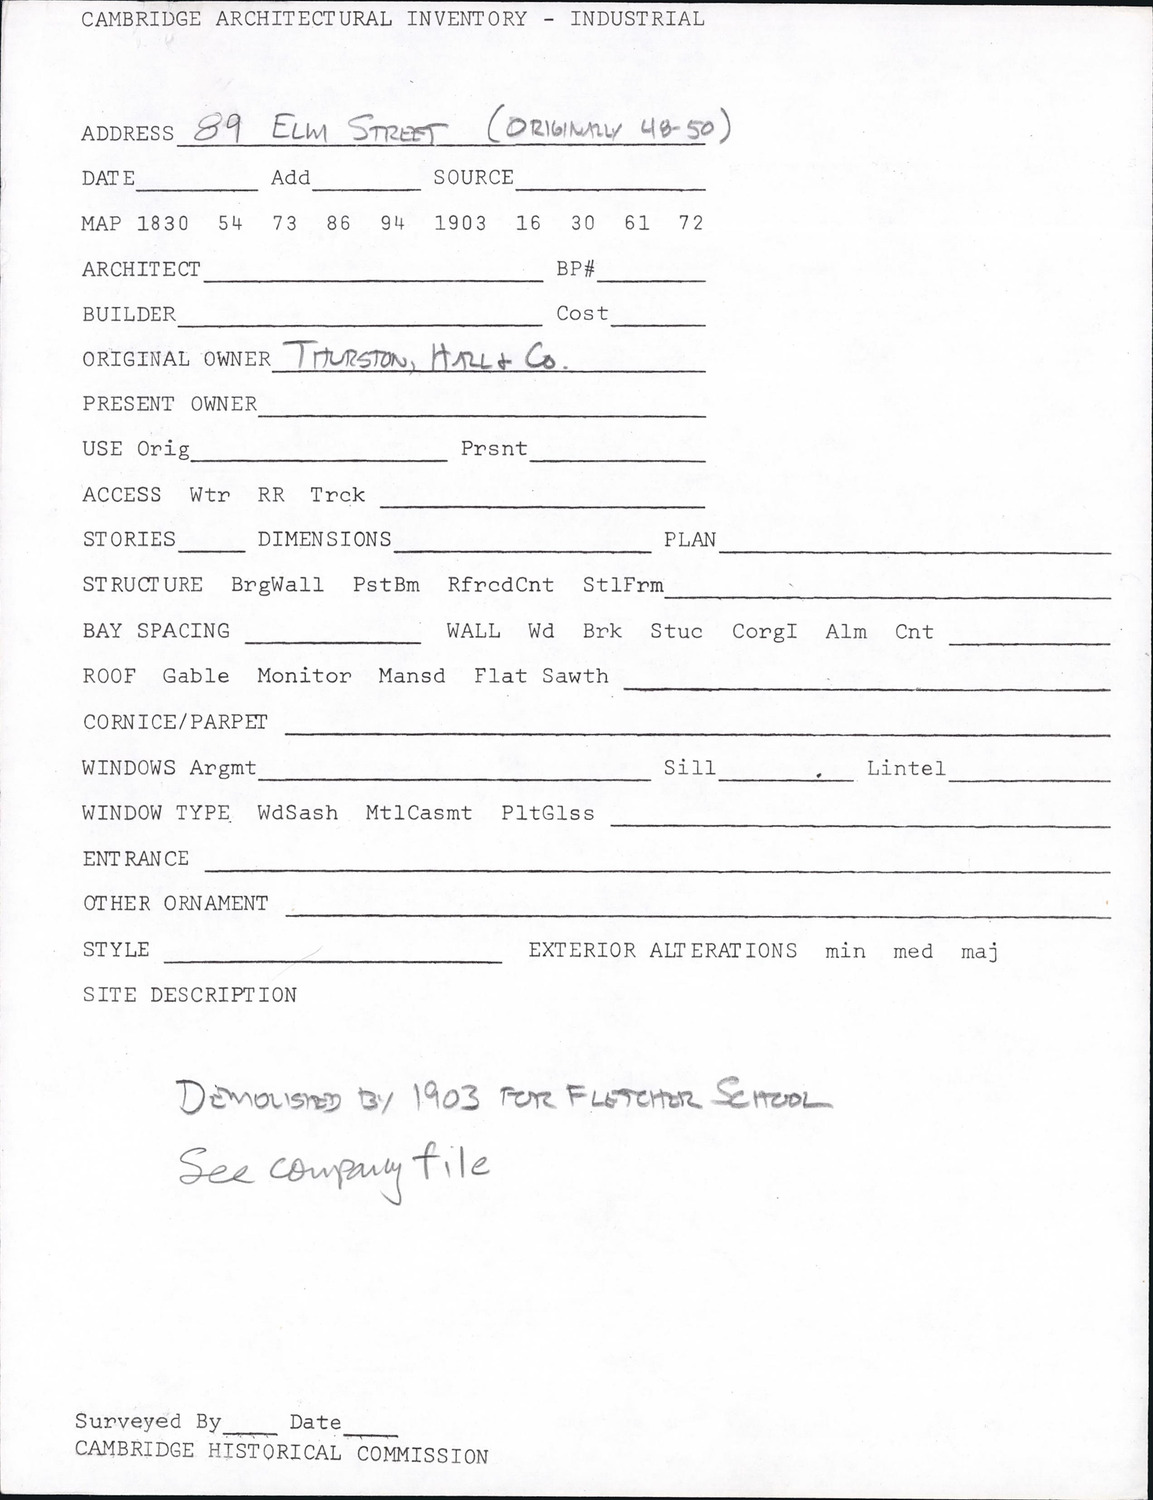 CAMBRIDGE ARCHITECTURAL INVENTORY - INDUSTRIAL
ADDRESS 89 ELM STREET (ORIGINALLY 48-50)
DATE Add SOURCE
MAP 1830 54 73 86 94 1903 16 30 61 72
ARCHITECT BP#
BUILDER Cost
ORIGINAL OWNER THURSTON, HALL + CO.
PRESENT OWNER
USE Orig Prsnt
ACCESS Wtr RR Trck
STORIES DIMENSIONS PLAN
STRUCTURE BrgWall PstBm RfrcdCnt StlFrm
BAY SPACING WALL Wd Brk Stuc CorgI Alm Cnt
ROOF Gable Monitor Mansd Flat Sawth
CORNICE/PARPET
WINDOWS Argmt Sill Lintel
WINDOW TYPE WdSash MtlCasmt PltGlss
ENTRANCE
OTHER ORNAMENT
STYLE EXTERIOR ALTERATIONS min med maj
SITE DESCRIPTION
DEMOLISHED BY 1903 FOR FLETCHER SCHOOL
See company file
Surveyed By Date
CAMBRIDGE HISTORICAL COMMISSION